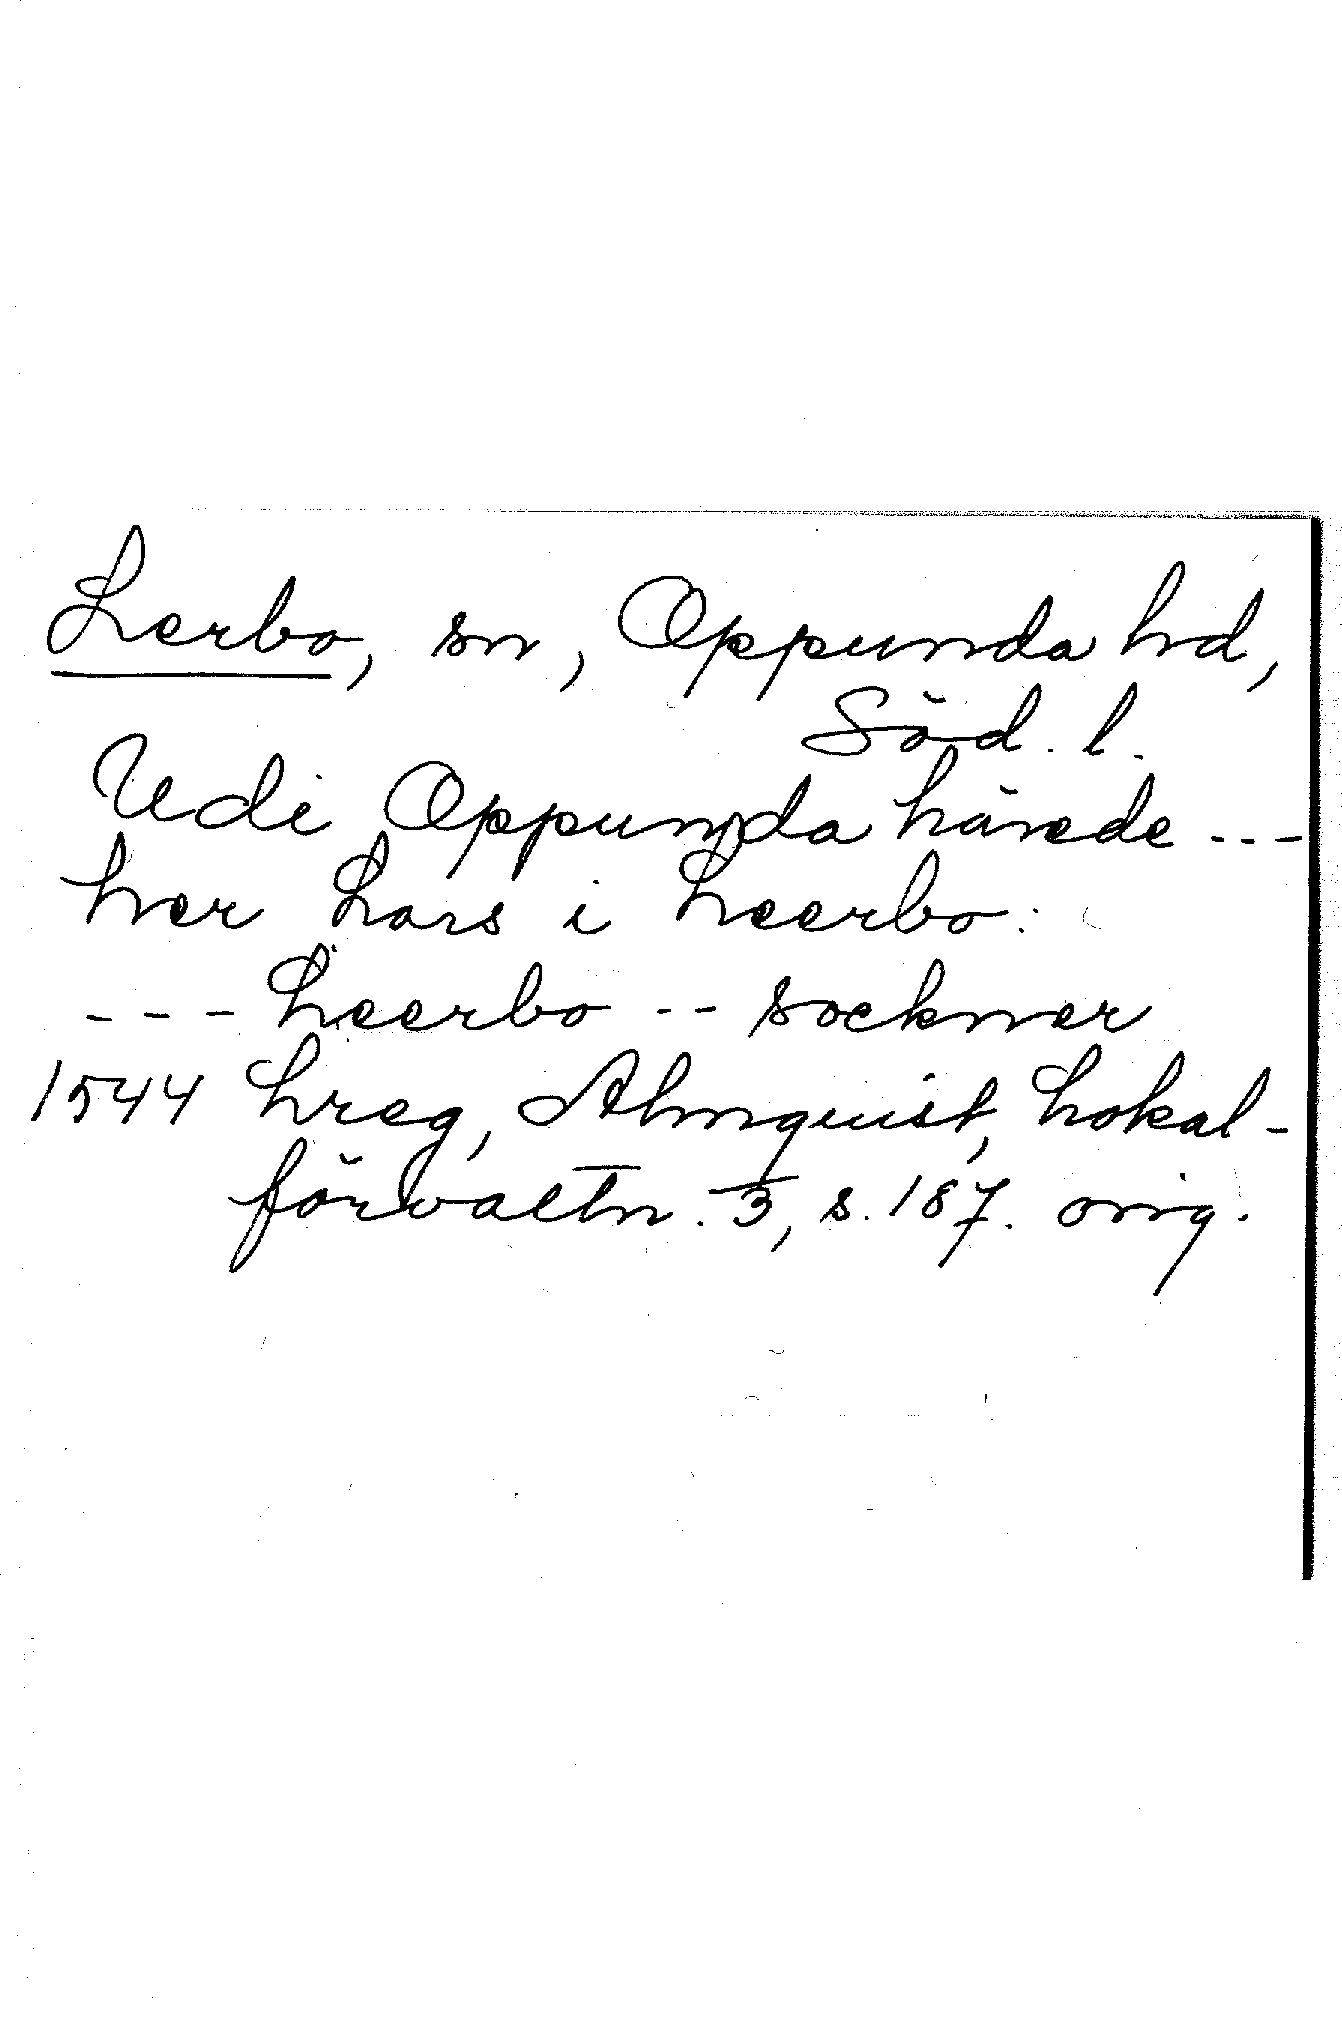 Lerbo, sn, Oppunda hd,
Söd. l.
Udi Oppunda härede ---
her Lars i Leerbo:
--- Leerbo -- sockner
1544 Lreg, Almquist, Lokal-
förvaltn. 3, s. 187. orig.